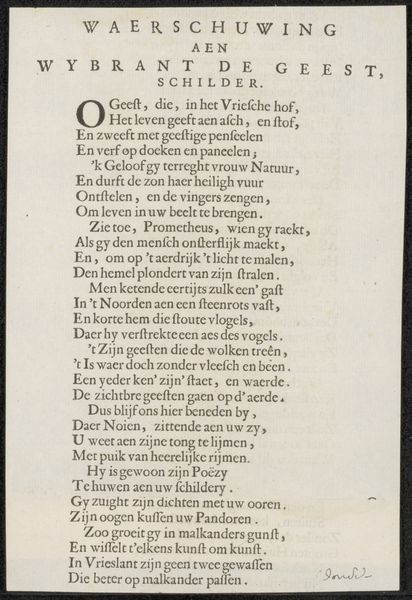 WAERSCHUWING
AEN
WYBRANT DE GEEST,
SCHILDER.
O Geeſt, die, in het Vrieſche hof,
Het leven geeft aen aſch, en ſtof,
En zweeft met geeſtige penſeelen
En verf op doeken en paneelen;
'k Geloof gy terreght vrouw Natuur,
En durft de zon haer heiligh vuur
Ontſtelen, en de vingers zengen,
Om leven in uw beelt te brengen.
Zie toe, Prometheus, wien gy raekt,
Als gy den menſch onſterflijk maekt,
En, om op 't aerdrijk 't licht te malen,
Den hemel plondert van zijn ſtralen.
Men ketende eertijts zulk een' gaſt
In 't Noorden aen een ſteenrots vaſt,
En korte hem die ſtoute vlogels,
Daer hy verſtrekte een aes des vogels.
't Zijn geeſten die de wolken treên,
't Is waer doch zonder vleeſch en béen.
Een yeder ken' zijn' ſtaet, en waerde.
De zichtbre geeſten gaen op d'aerde.
Dus blijf ons hier beneden by,
Daer Noien, zittende aen uw zy,
U weet aen zijne tong te lijmen,
Met puik van heerelijke rijmen.
Hy is gewoon zijn Poëzy
Te huwen aen uw ſchildery.
Gy zuight zijn dichten met uw ooren.
Zijn oogen kuſſen uw Pandoren.
Zoo groeit gy in malkanders gunſt,
En wiſſelt t'elkens kunſt om kunſt.
In Vrieslant zijn geen twee gewaſſen
Die beter op malkander paſſen.